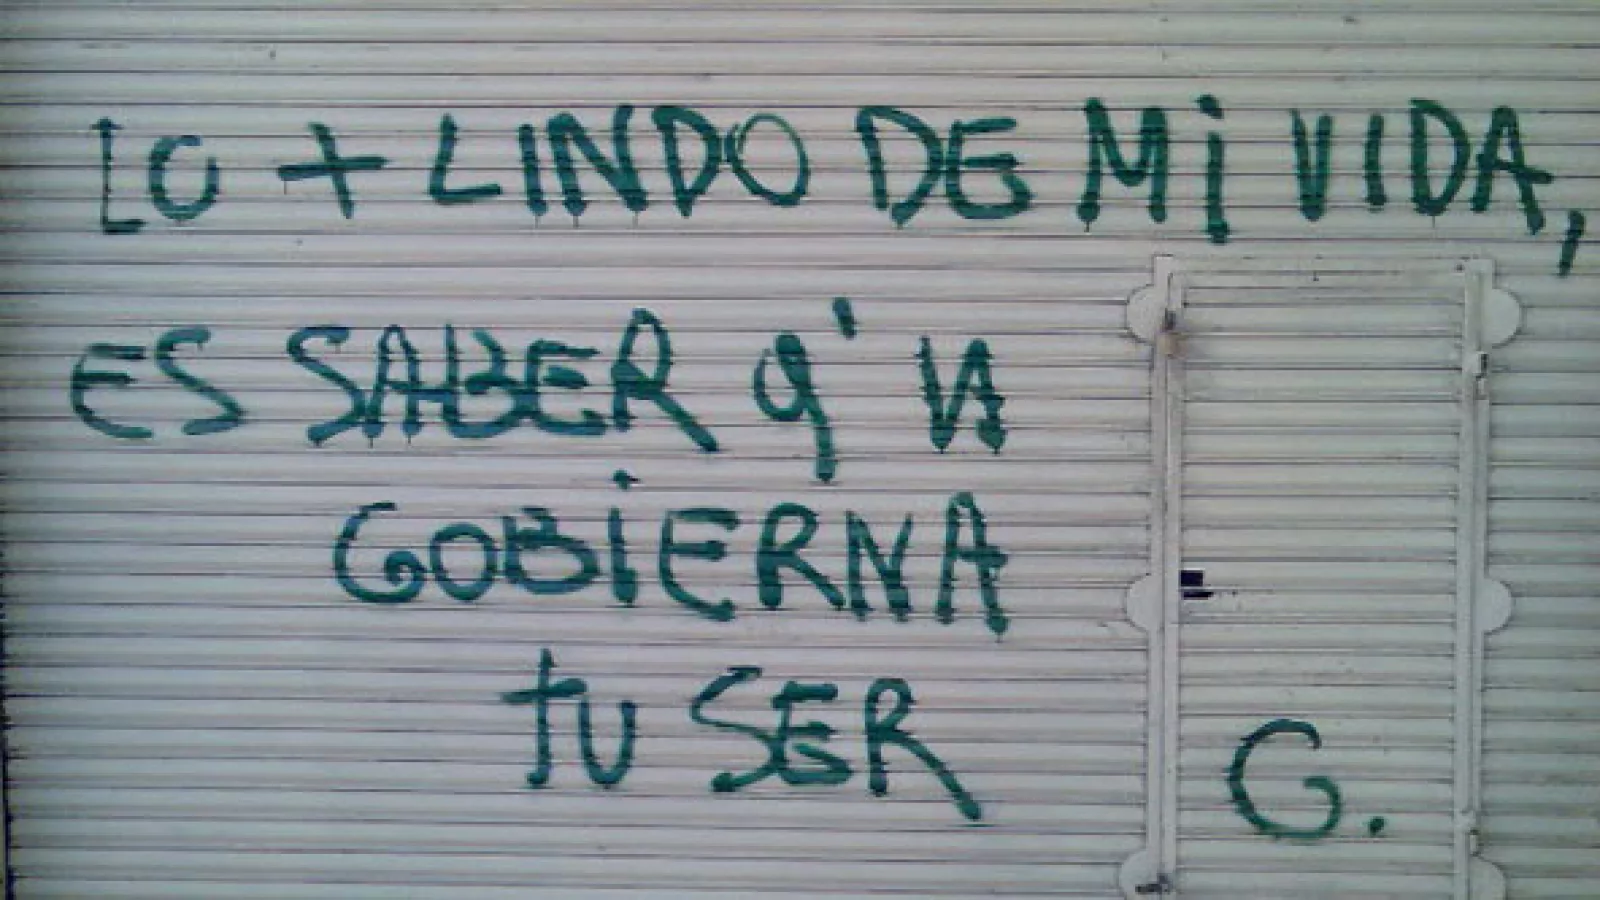 LO + LINDO DE Mi VIDA,
ES SABER q' YA
GOBiERNA
tU SER
G.